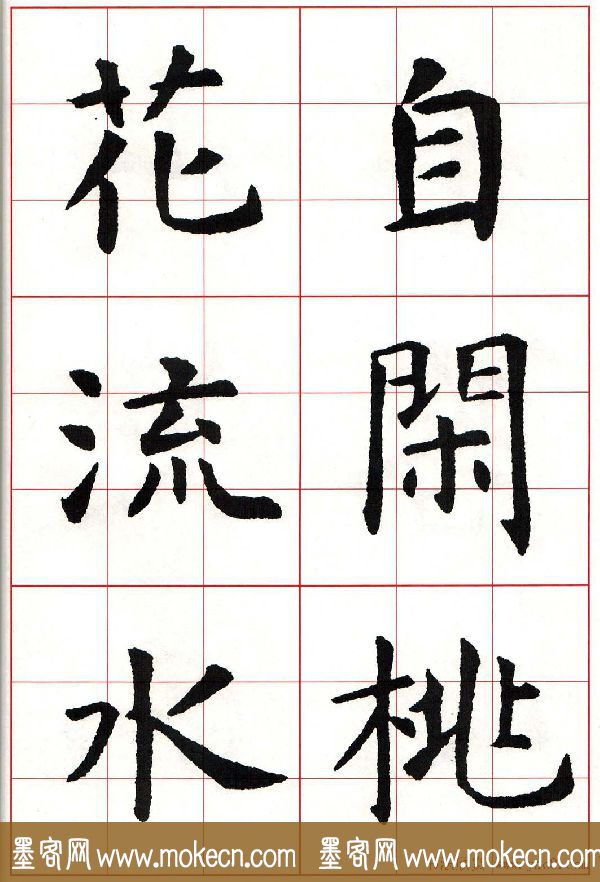 自閑桃
花流水
墨客网 www.mokecn.com 墨客网 www.mokecn.com